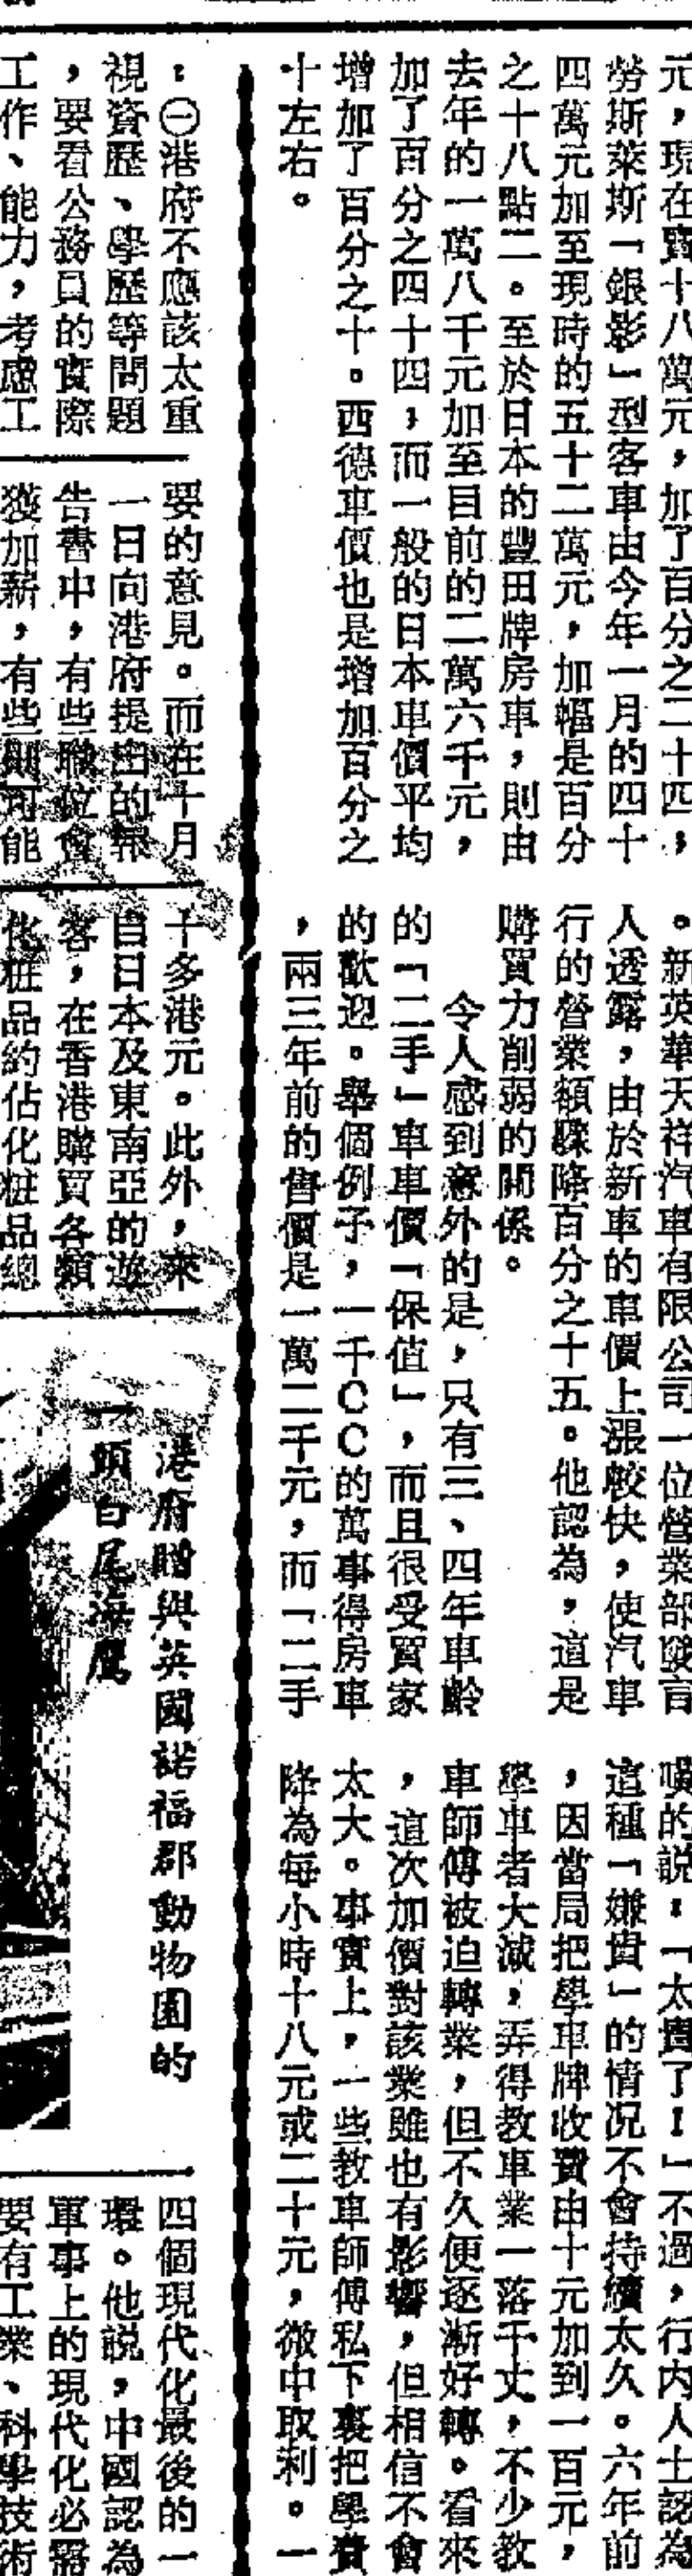 元，現在賣十八萬元，加了百分之二十四，
勞斯萊斯「銀影」型客車由今年一月的四十
四萬元加至現時的五十二萬元，加幅是百分
之十八點二。至於日本的豐田牌房車，則由
去年的一萬八千元加至目前的二萬六千元，
加了百分之四十四，而一般的日本車價平均
增加了百分之十。西德車價也是增加百分之
十左右。
。新英華天祥汽車有限公司一位營業部發言
人透露，由於新車的車價上漲較快，使汽車
行的營業額驟降百分之十五。他認為，這是
購買力削弱的關係。
令人感到意外的是，只有三、四年車齡
的「二手」車車價「保值」，而且很受買家
的歡迎。舉個例子，一千ＣＣ的萬事得房車
，兩三年前的售價是一萬二千元，而「二手
嘆的說：「太貴了！」不過，行內人士認為
這種「嫌貴」的情况不會持續太久。六年前
，因當局把學車牌收費由十元加到一百元，
學車者大減，弄得教車業一落千丈，不少教
車師傅被迫轉業，但不久便逐漸好轉。看來
，這次加價對該業雖也有影響，但相信不會
太大。事實上，一些教車師傅私下裏把學費
降為每小時十八元或二十元，微中取利。一
：㊀港府不應該太重
視資歷、學歷等問題
，要看公務員的實際
工作、能力，考慮工
要的意見。而在十月
一日向港府提出的報
告書中，有些職位會
獲加薪，有些則可能
十多港元。此外，來
自日本及東南亞的遊
客，在香港購買各類
化粧品約佔化粧品總
港府贈與英國諾福郡動物園的
一頭白尾海鷹
四個現代化最後的一
環。他說，中國認為
軍事上的現代化必需
要有工業、科學技術